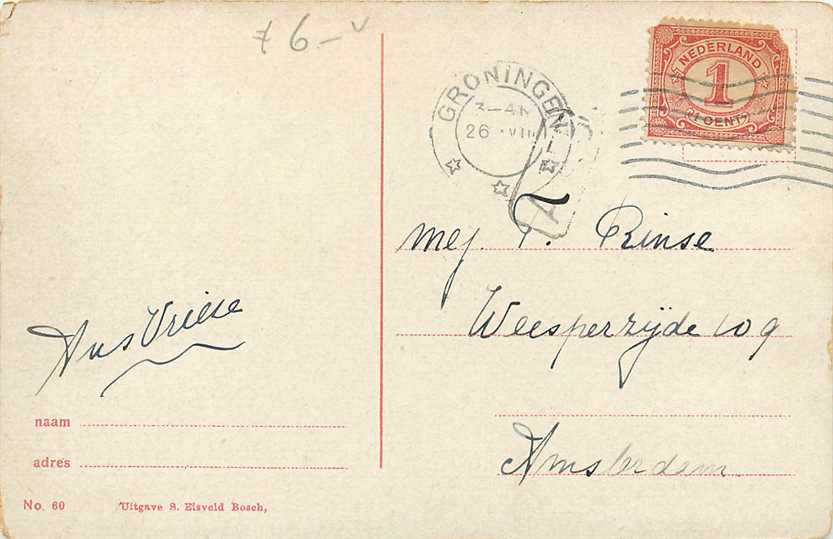 6-
NEDERLAND
1
CENT
GRONINGEN
26 VII
Mej. F. Rinse
Weesperzijde 109
Amsterdam
Ans Vriese
naam
adres
No. 60 Uitgave S. Elsveld Bosch,